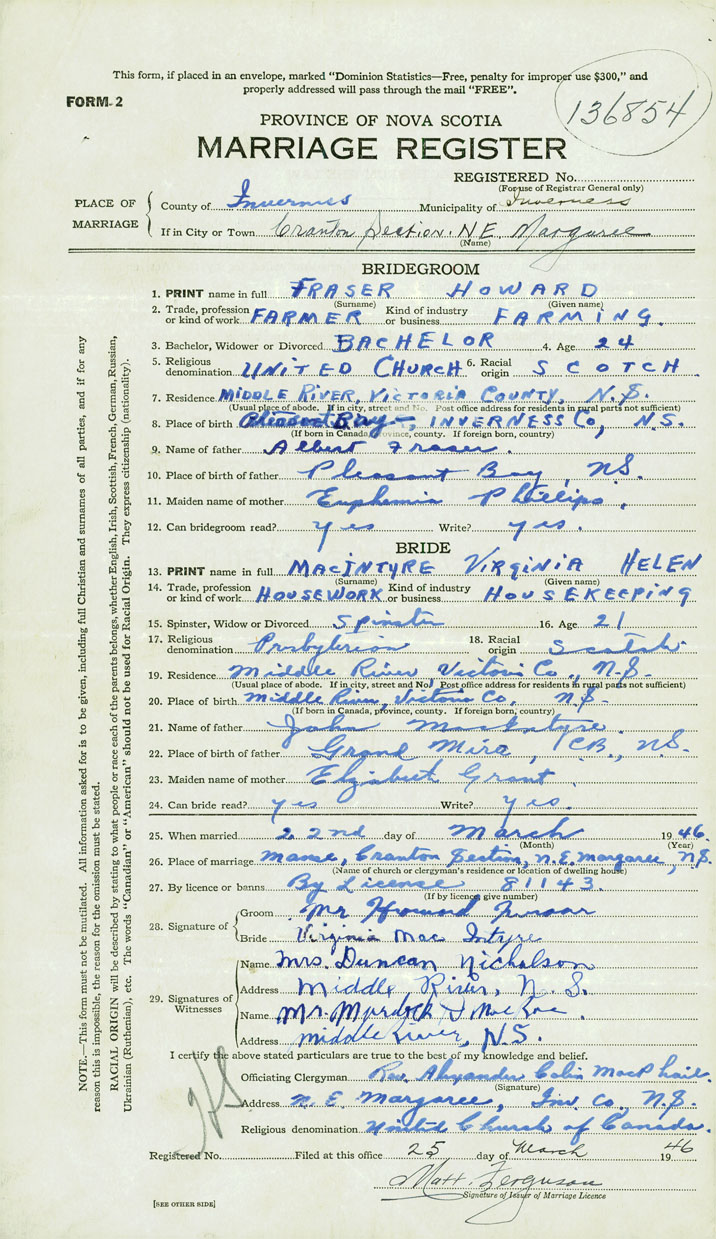 This form, if placed in an envelope, marked "Dominion Statistics—Free, penalty for improper use $300," and
properly addressed will pass through the mail "FREE".
FORM 2
136854
PROVINCE OF NOVA SCOTIA
MARRIAGE REGISTER
REGISTERED No.
(For use of Registrar General only)
PLACE OF MARRIAGE
County of Inverness Municipality of Inverness
If in City or Town Cranton Section. N.E. Margaree
(Name)
BRIDEGROOM
1. PRINT name in full FRASER HOWARD
(Surname) (Given name)
2. Trade, profession or kind of work FARMER Kind of industry or business FARMING.
3. Bachelor, Widower or Divorced BACHELOR 4. Age 24
5. Religious denomination UNITED CHURCH 6. Racial origin SCOTCH
7. Residence MIDDLE RIVER, VICTORIA COUNTY, N.S.
(Usual place of abode. If in city, street and No. Post office address for residents in rural parts not sufficient)
8. Place of birth Pleasant Bay, INVERNESS Co, N.S.
(If born in Canada, province, county. If foreign born, country)
9. Name of father Albert Fraser.
10. Place of birth of father Pleasant Bay, NS.
11. Maiden name of mother Euphemia Phillips.
12. Can bridegroom read? yes Write? yes.
BRIDE
13. PRINT name in full MACINTYRE VIRGINIA HELEN
(Surname) (Given name)
14. Trade, profession or kind of work HOUSEWORK Kind of industry or business HOUSEKEEPING
15. Spinster, Widow or Divorced Spinster 16. Age 21
17. Religious denomination Presbyterian 18. Racial origin Scotch
19. Residence Middle River, Victoria Co., N.S.
(Usual place of abode. If in city, street and No. Post office address for residents in rural parts not sufficient)
20. Place of birth Middle River, Victoria Co, N.S.
(If born in Canada, province, county. If foreign born, country)
21. Name of father John MacIntyre.
22. Place of birth of father Grand Mira, C.B., NS.
23. Maiden name of mother Elizabeth Grant.
24. Can bride read? yes Write? yes.
25. When married 22nd day of March 1946.
(Month) (Year)
26. Place of marriage Manse, Cranton Section, N.E. Margaree, N.S.
(Name of church or clergyman's residence or location of dwelling house)
27. By licence or banns By License 81143.
(If by licence give number)
28. Signature of
Groom Mr Howard Fraser
Bride Virginia Mac Intyre
29. Signatures of Witnesses
Name Mrs. Duncan Nicholson
Address Middle River, N.S.
Name Mr. Murdock J. MacRae
Address Middle River, N.S.
I certify the above stated particulars are true to the best of my knowledge and belief.
Officiating Clergyman Rev. Alexander Colin MacPhail.
(Signature)
Address N.E. Margaree, Inv. Co. N.S.
Religious denomination United Church of Canada.
Registered No. Filed at this office 25 day of March 1946
Matt. Ferguson
Signature of Issuer of Marriage Licence
[SEE OTHER SIDE]
NOTE.—This form must not be mutilated. All information asked for is to be given, including full Christian and surnames of all parties, and if for any
reason this is impossible, the reason for the omission must be stated.
RACIAL ORIGIN will be described by stating to what people or race each of the parents belongs, whether English, Irish, Scottish, French, German, Russian,
Ukrainian (Ruthenian), etc. The words "Canadian" or "American" should not be used for Racial Origin. They express citizenship (nationality).